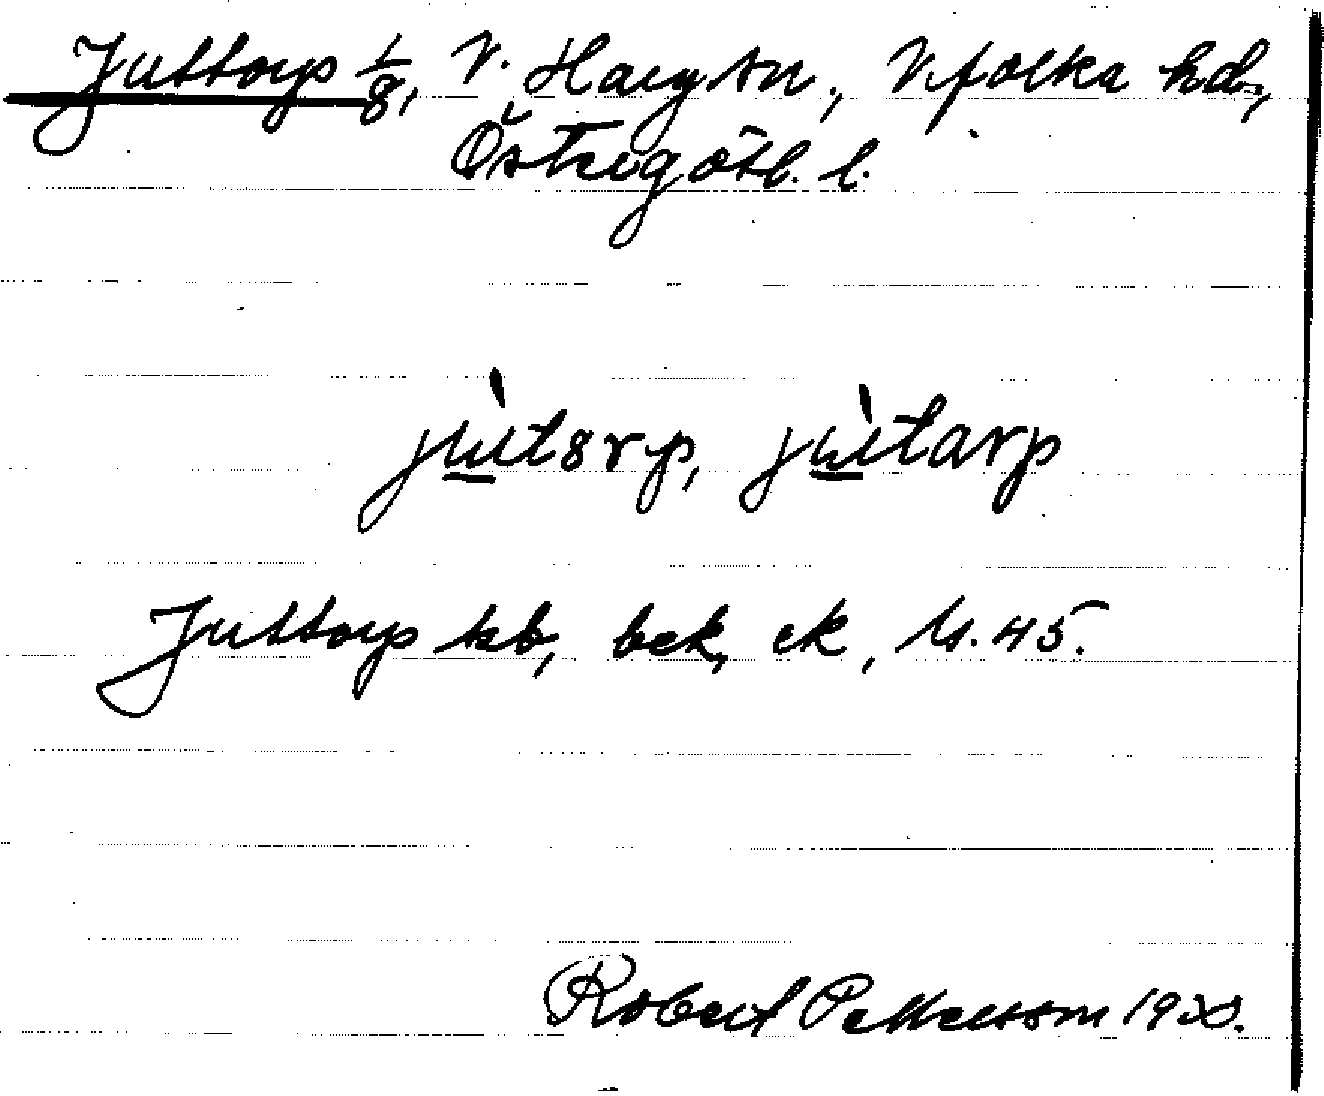 Juttorp 1/8, V. Harg sn., Vifolka hd.,
Östergötl. l.
jùt8rp, jùtarp
Juttorp kb, bek, ek, M. 45.
Robert Pettersson